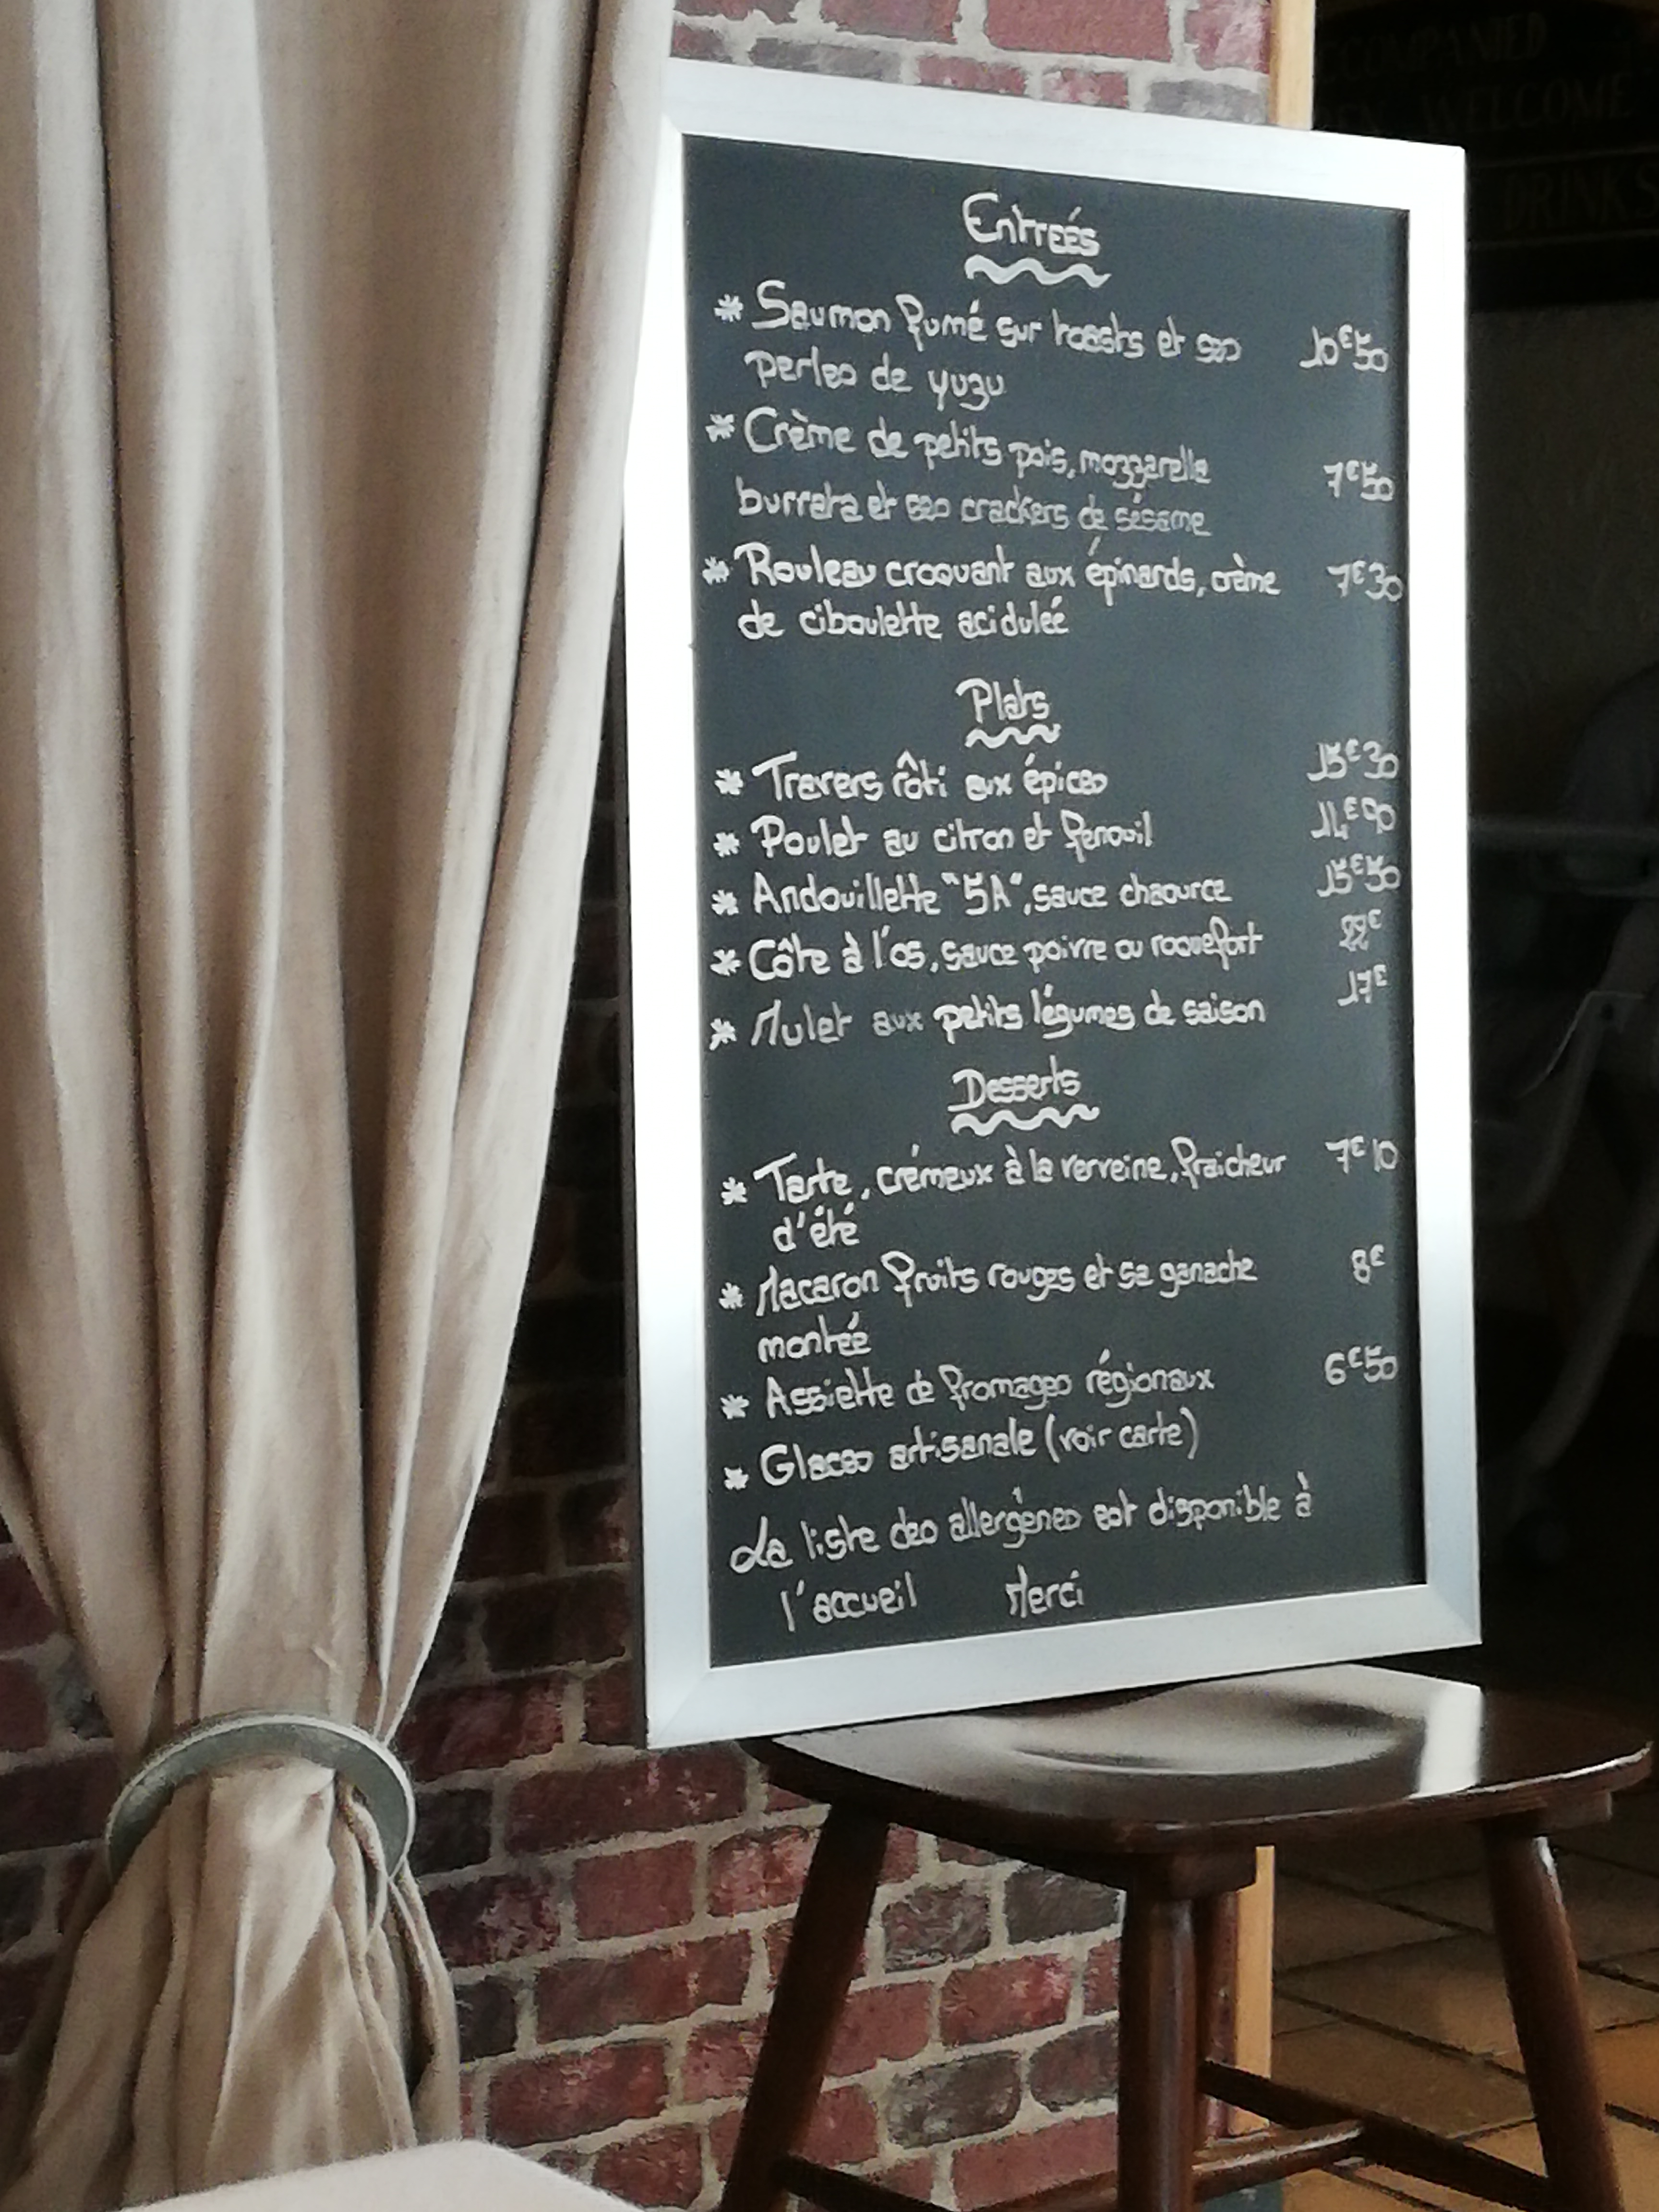 Entreés
* Saumon fumé sur toasts et ses 10€50
perles de yuzu
* Crème de petits pois, mozzarella
burrata et ses crackers de sésame 7€50
* Rouleau croquant aux épinards, crème 7€30
de ciboulette aciduleé
Plats
* Travers rôti aux épices 15€30
* Poulet au citron et fenouil 14€90
* Andouillette "5A", sauce chaource 15€50
* Côte à l'os, sauce poivre ou roquefort 22€
* Mulet aux petits légumes de saison 17€
Desserts
* Tarte, crémeux à la verveine, fraicheur 7€10
d'été
* Macaron fruits rouges et sa ganache 8€
montée
* Assiette de fromages régionaux 6€50
* Glaces artisanale (voir carte)
La liste des allergènes est disponible à
l'accueil Merci
WELCOME
DRINKS